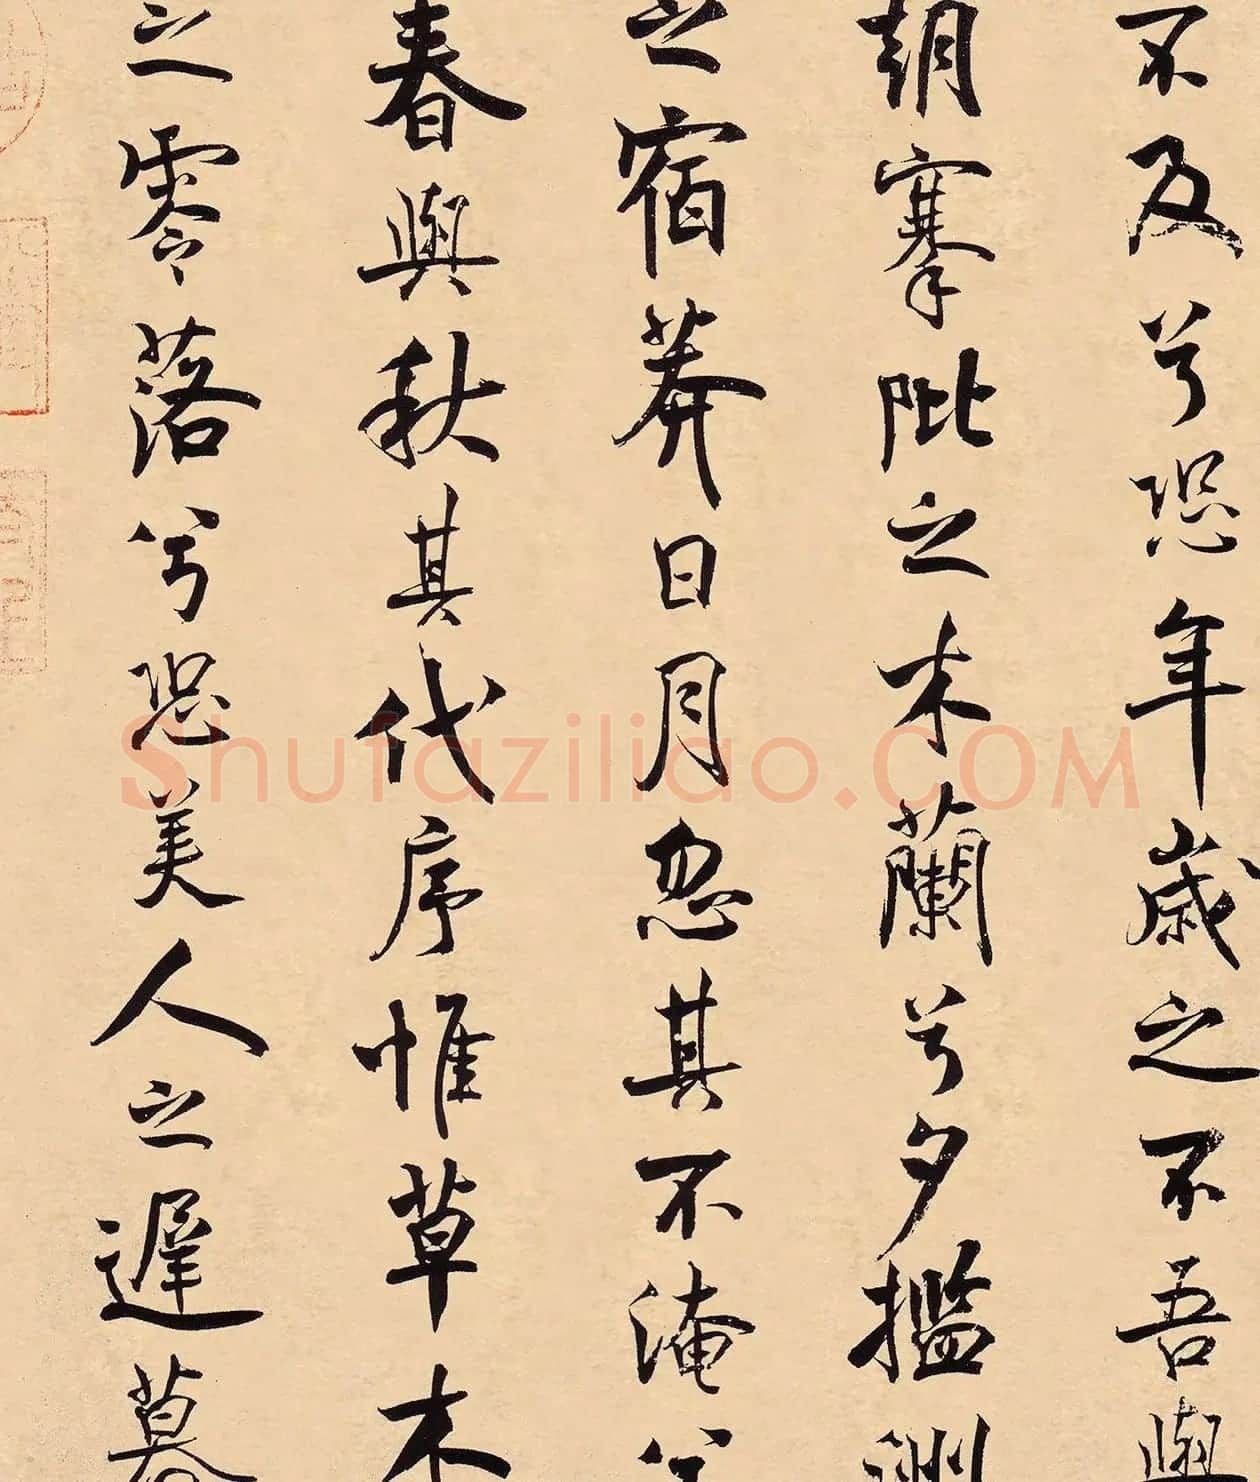 不及兮恐年歲之不吾與
朝搴阰之木蘭兮夕㩜洲
之宿莽日月忽其不淹兮
春與秋其代序惟草木
之零落兮恐美人之遲暮
Shufaziliao.COM